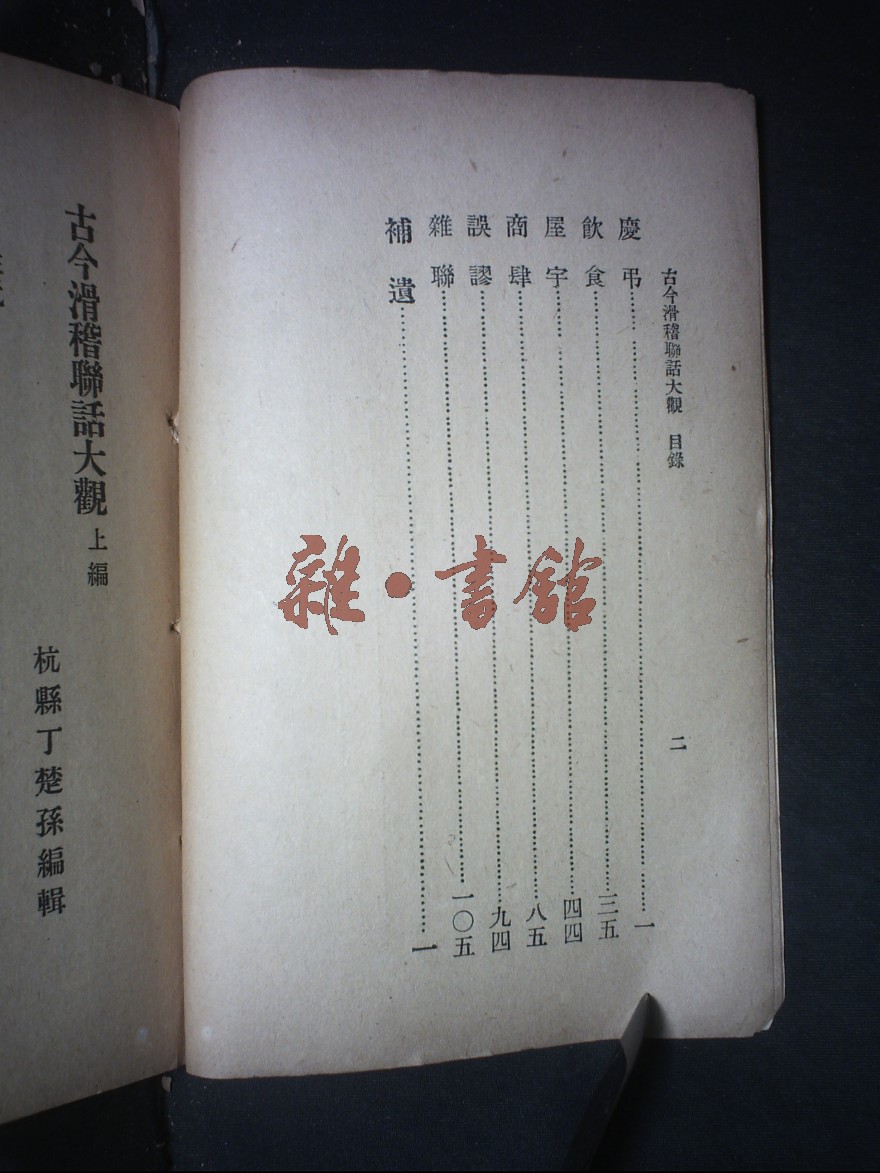 古今滑稽聯話大觀 目錄
二
慶弔 一
飲食 三五
屋宇 四四
商肆 八五
誤謬 九四
雜聯 一〇五
補遺 一
雜·書館
古今滑稽聯話大觀 上編
杭縣丁楚孫編輯